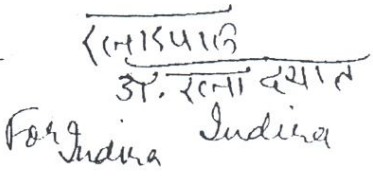 डॉ. रत्ना दयाल
For Indira Indira